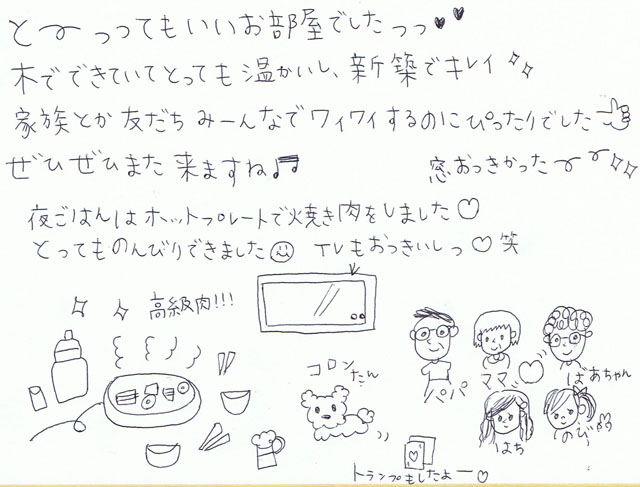 と〜っってもいいお部屋でしたっっ♥♥
木でできていてとっても温かいし、新築でキレイ
家族とか友だちみーんなでワイワイするのにぴったりでした
ぜひぜひまた来ますね♬
窓おっきかった〜〜
夜ごはんはホットプレートで火焼き肉をしました♡
とってものんびりできました☺ TVもおっきいしっ♡笑
高級肉!!!
コロン
たん
パパ
ママ
ばあちゃん
はち
のび
トランプもしたよー♡